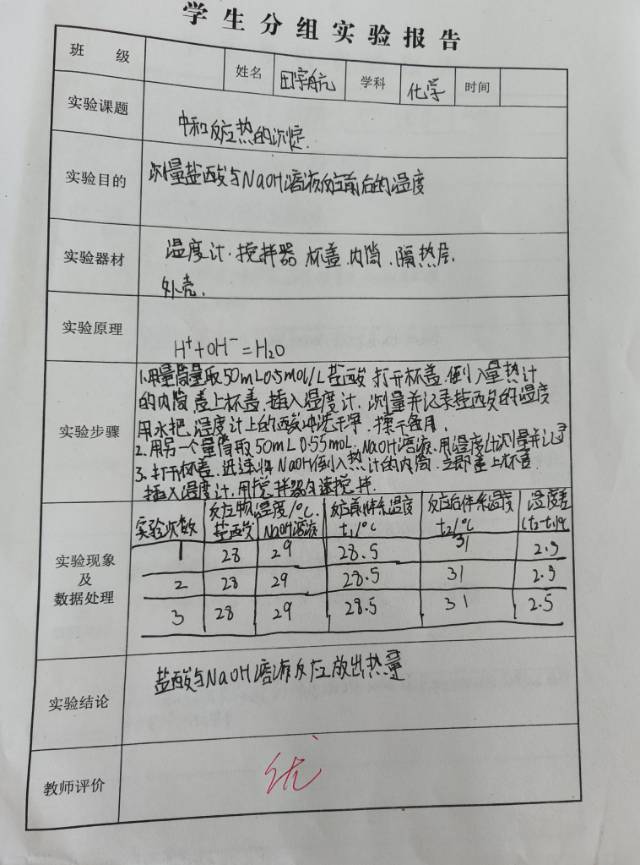 学生分组实验报告
班级 姓名 田宇航 学科 化学 时间
实验课题 中和反应热的测定.
实验目的 测量盐酸与NaOH溶液反应前后的温度
实验器材 温度计.搅拌器 杯盖.内筒.隔热层.
外壳.
实验原理 H⁺+OH⁻=H₂O
实验步骤
1.用量筒量取50mL0.5mol/L盐酸 打开杯盖.倒入量热计
的内筒 盖上杯盖.插入温度计.测量并记录盐酸的温度
用水把温度计上的酸冲洗干净.擦干备用.
2.用另一个量筒取50mL0.55mol.NaOH溶液.用温度计测量并记录
3.打开杯盖.迅速将NaOH倒入热计的内筒.立即盖上杯盖.
插入温度计.用搅拌器匀速搅拌.
实验现象及数据处理
实验次数 反应物温度/℃. 反应前体系温度 反应后体系温度 温度差
盐酸 NaOH溶液 t₁/℃ t₂/℃ (t₂-t₁)/℃
1 28 29 28.5 31 2.5
2 28 29 28.5 31 2.5
3 28 29 28.5 31 2.5
实验结论 盐酸与NaOH溶液反应放出热量
教师评价 优